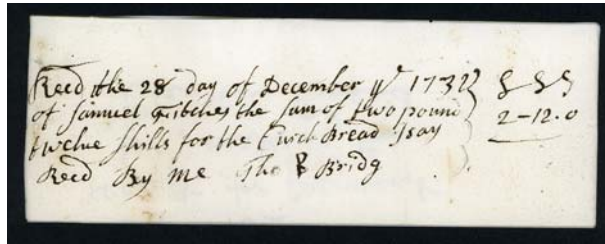 Recd the 28 day of December ye 1732 £ S S
of Samuel the sum of two pound 2-12.0
twelve shills for the Bread I say
Recd By me Tho Bridg